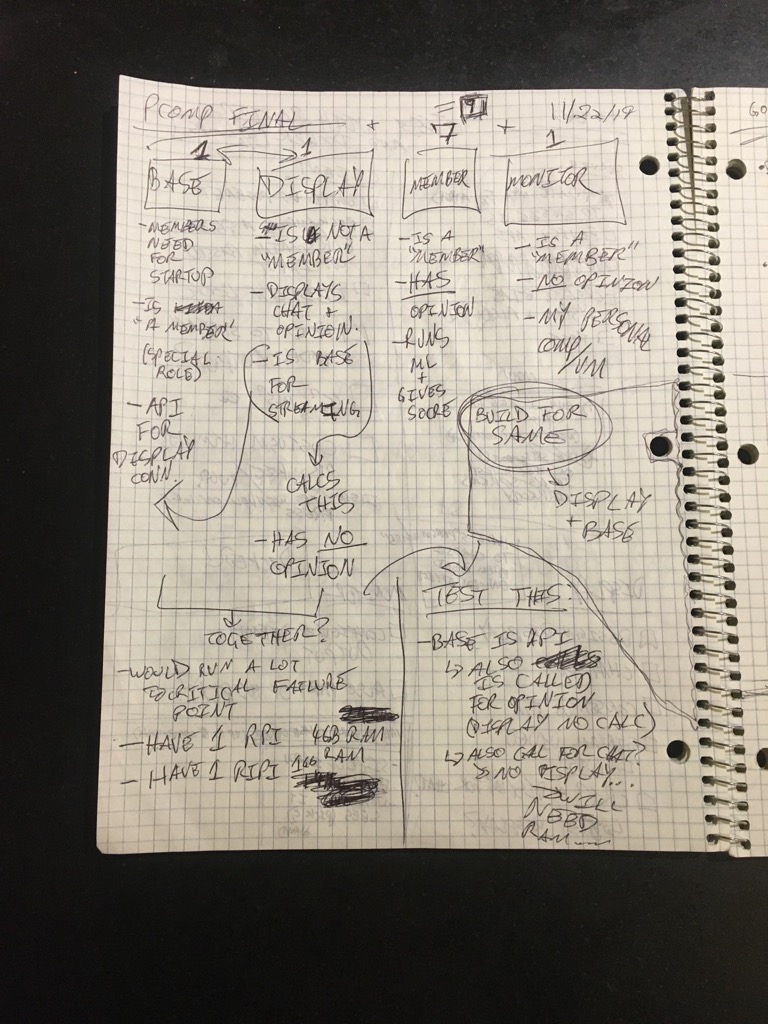 PCOMP FINAL
11/22/19
= 9
1
+
1
7
+
1
BASE
DISPLAY
MEMBER
MONITOR
- MEMBERS
NEED
FOR
STARTUP
- IS
"A MEMBER"
(SPECIAL
ROLE)
- API
FOR
DISPLAY
CONN.
- IS NOT A
"MEMBER"
- DISPLAYS
CHAT +
OPINION.
- IS BASE
FOR
STREAMING
CALCS
THIS
- HAS NO
OPINION
- IS A
"MEMBER"
- HAS
OPINION
- RUNS
ML
+
GIVES
SCORE
- IS A
"MEMBER"
- NO OPINION
- MY PERSONAL
COMP/VM
BUILD FOR
SAME
DISPLAY
+ BASE
TOGETHER?
- WOULD RUN A LOT
CRITICAL FAILURE
POINT
- HAVE 1 RPI 4GB RAM
- HAVE 1 RIPI 1GB RAM
TEST THIS:
- BASE IS API
↳ ALSO
IS CALLED
FOR OPINION
(DISPLAY NO CALC)
↳ ALSO CALL FOR CHAT?
NO DISPLAY...
→ WILL
NEED
RAM....
GO